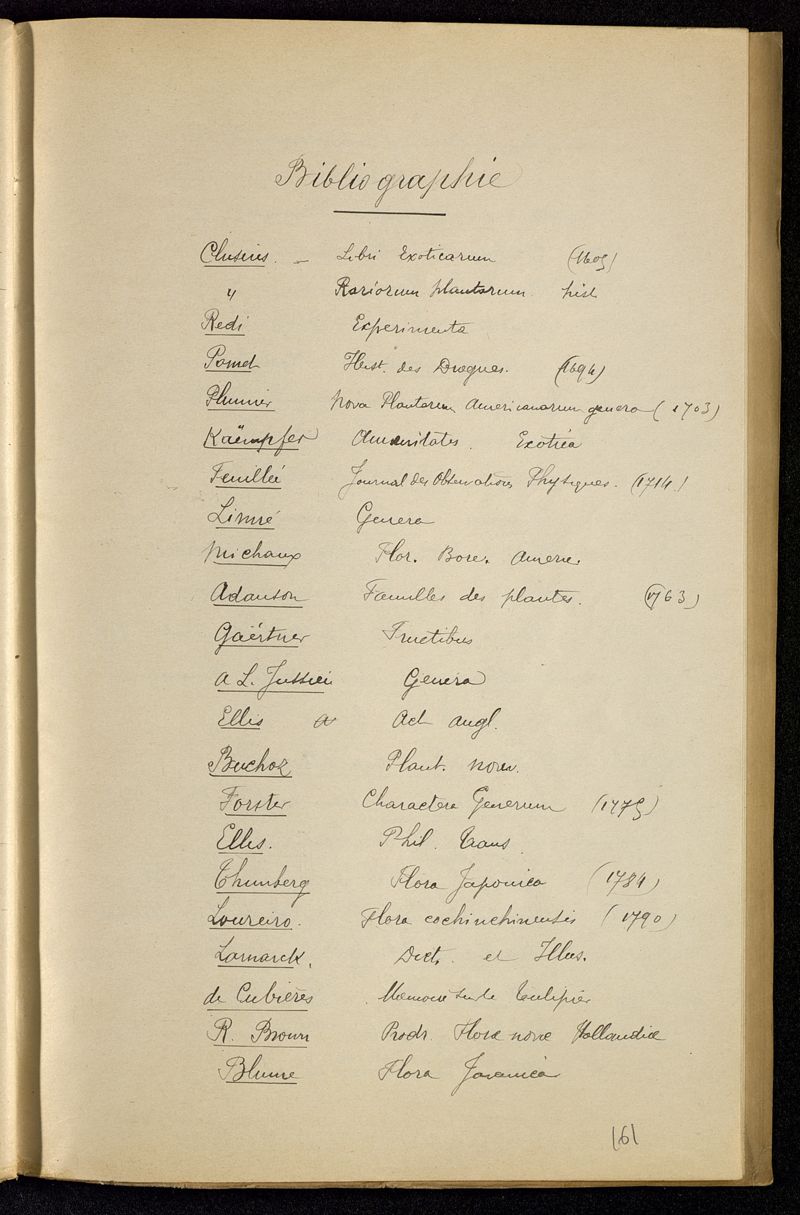 Bibliographie
Clusius. - Libri Exoticarum (1605)
" Rariorum plantarum hist
Redi Experimenta
Pomet Hist. des Drogues. (1694)
Plumier Nova Plantarum Americanarum genera (1703)
Kaëmpfer Amaenitates Exotica
Feuillée Journal des Observations Physiques. (1714)
Linné Genera
Michaux Flor. Bore. Amer.
Adanson Familles des plantes. (1763)
Gaërtner Fructibus
A L. Jussieu Genera
Ellis Act angl.
Buchoz Plant. nouv.
Forster Charactera Generum (1775)
Ellis. Phil. Trans
Thunberg Flora Japonica (1784)
Loureiro. Flora cochinchinensis (1790)
Lamarck. Dict. et Illus.
de Cubières Memoire sur le tulipier
R. Brown Prodr. Florae novae Hollandiae
Blume Flora Javanica
161